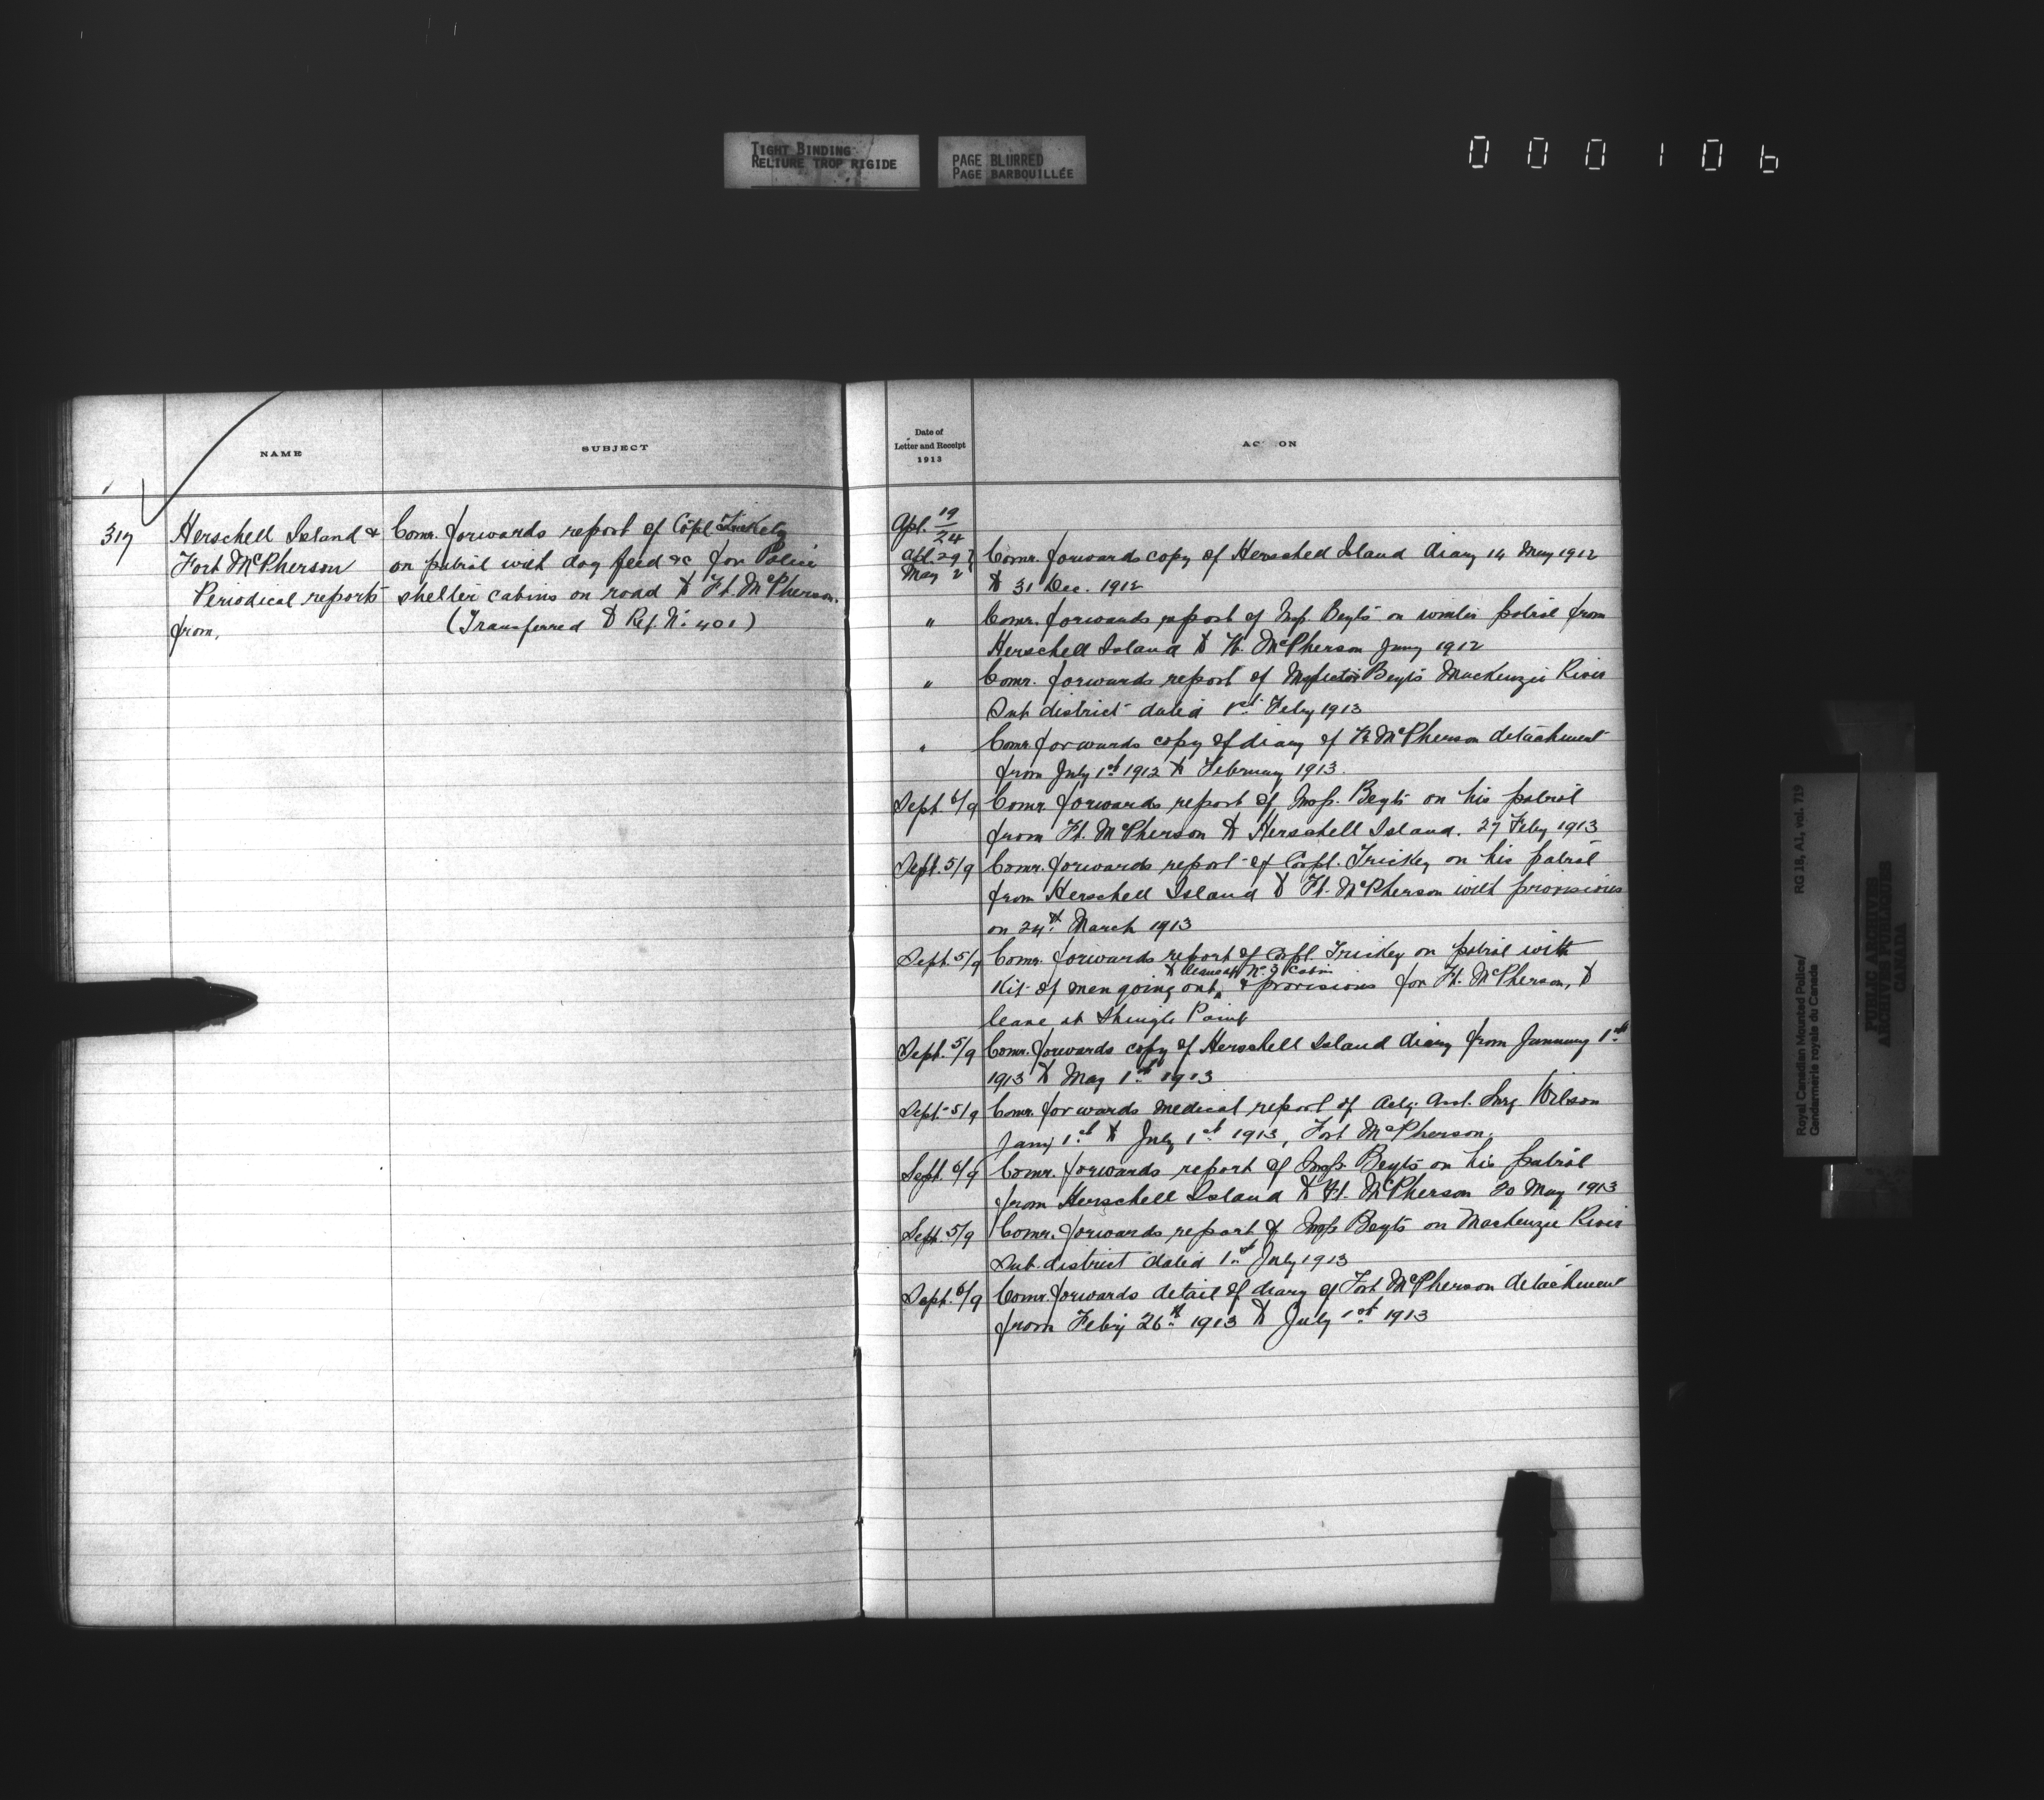 TIGHT BINDING
RELIURE TROP RIGIDE
PAGE BLURRED
PAGE BARBOUILLÉE
000106
NAME
SUBJECT
317
Herschell Island &
Fort McPherson
Periodical reports
from,
Comr. forwards report of Copl
on patrol with dog feed &c for Police
shelter cabins on road to Ft. McPherson.
(Transferred to Ref. No. 401)
Date of
Letter and Receipt
1913
AC ON
Apl. 19/24
Apl. 29 } Comr. forwards copy of Herschell Island diary 14 May 1912
May 2 } to 31 Dec. 1912
" Comr. forwards report of Insp. Beyts on winter patrol from
Herschell Island to Ft. McPherson Jany 1912
" Comr. forwards report of Inspector Beyts Mackenzie River
Sub district dated 1st Feby 1913
" Comr. forwards copy of diary of Ft McPherson detachment
from July 1st 1912 to February 1913.
Sept. 6/9 Comr. forwards report of Insp. Beyts on his patrol
from Ft. McPherson to Herschell Island. 27 Feby 1913
Sept. 5/9 Comr. forwards report of Corpl. Trickey on his patrol
from Herschell Island to Ft. McPherson with provisions
on 24th March 1913
Sept. 5/9 Comr. forwards report of Corpl. Trickey on patrol with
to leave at No. 3 Cabin
Kit of men going out, & provisions for Ft. McPherson, to
leave at Shingle Point
Sept. 5/9 Comr. forwards copy of Herschell Island diary from January 1st
1913 to May 1st 1913
Sept. 5/9 Comr. forwards medical report of Actg. Asst. Surg. Wilson
Jany 1st to July 1st 1913, Fort McPherson.
Sept. 6/9 Comr. forwards report of Insp. Beyts on his patrol
from Herschell Island to Ft. McPherson 20 May 1913
Sept. 5/9 Comr. forwards report of Insp Beyts on Mackenzie River
Sub. district dated 1st July 1913
Sept. 6/9 Comr. forwards detail of diary of Fort McPherson detachment
from Feby 26th 1913 to July 1st 1913
Royal Canadian Mounted Police/
Gendarmerie royale du Canada
RG 18, A1, vol. 719
PUBLIC ARCHIVES
ARCHIVES PUBLIQUES
CANADA